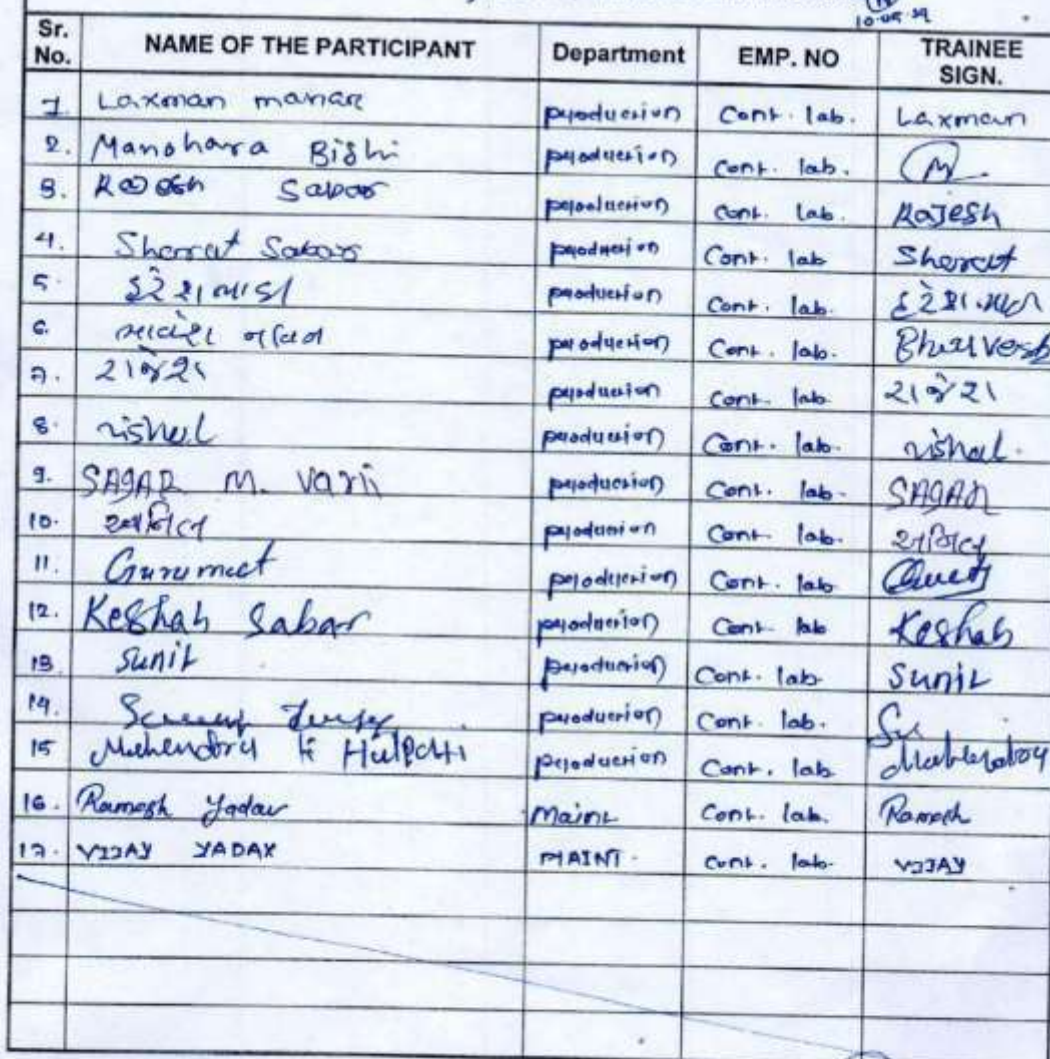 Sr. No. NAME OF THE PARTICIPANT Department EMP. NO TRAINEE SIGN.
1 Laxman manar production Cont. lab. Laxman
2. Manohara Bishi production Cont. lab. M
3. Rajesh Sabar production Cont. Lab. RaJesh
4. Sharat Sabar production Cont. lab Sharat
5. production Cont. lab.
6. ભાવેશ production Cont. lab. Bhavesh
7. રાજેશ production Cont. lab રાજેશ
8. vishal production Cont. lab. vishal.
9. SAGAR M. Varli production Cont. lab. SAGAR
10. production Cont. lab.
11. Gurumeet production Cont. lab.
12. Keshab Sabar production Cont. lab Keshab
13 Sunil production Cont. lab. Sunil
14. production Cont. lab.
15 Mahendra Halpati production Cont. lab Mahendra
16. Ramesh Yadav Maint Cont. lab. Ramesh
17. VIJAY YADAV MAINT. Cont. lab. VIJAY